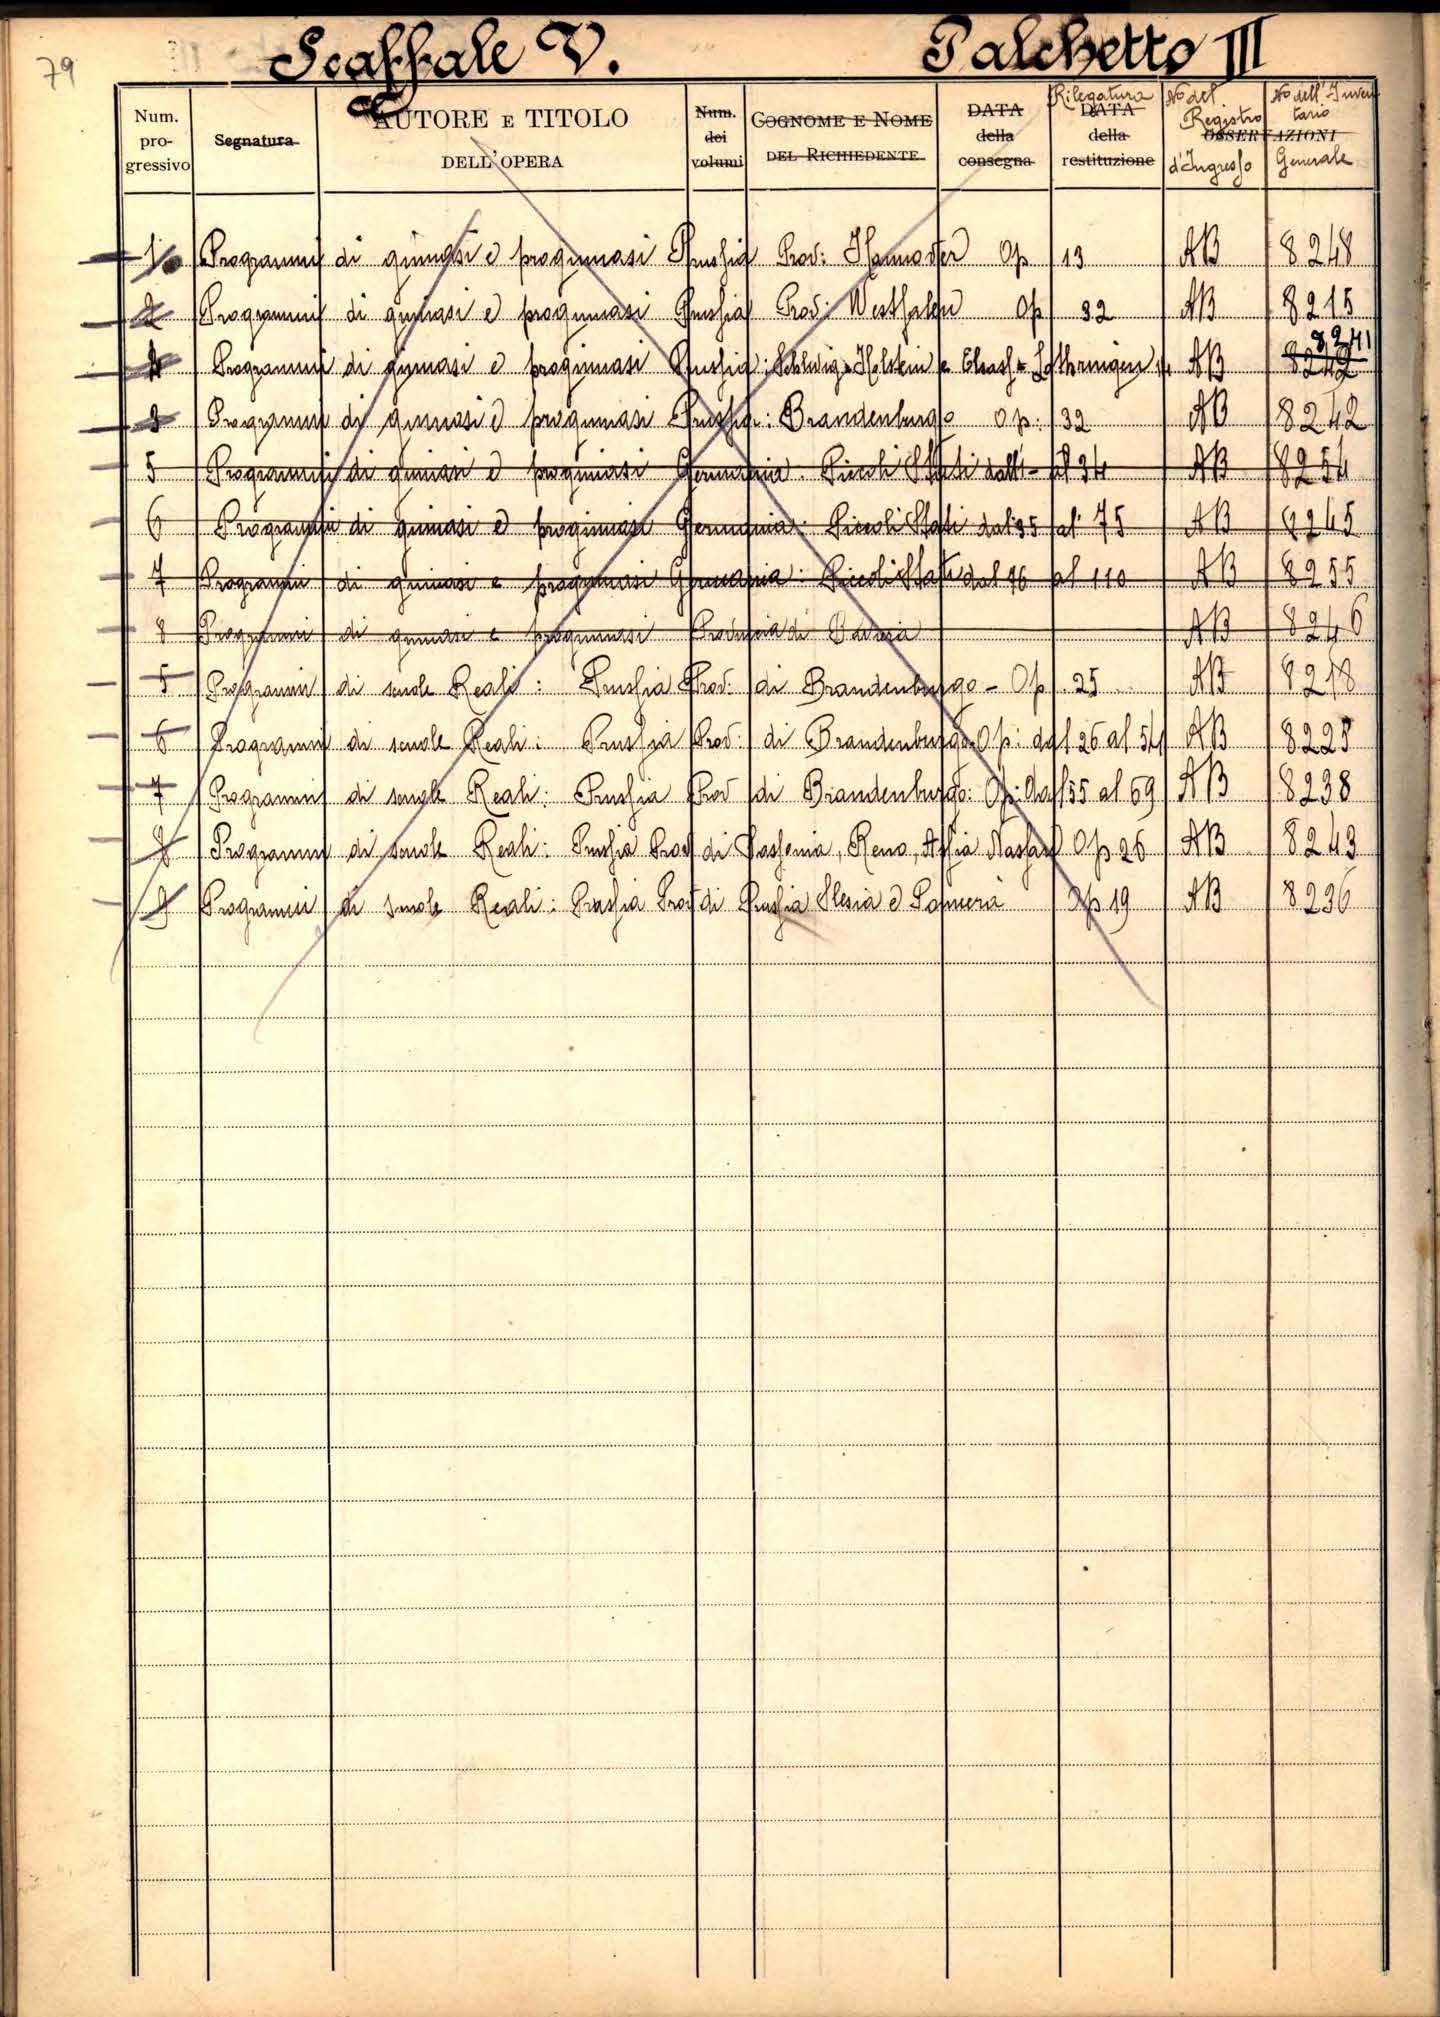 79
Scaffale V. Palchetto III
Num. progressivo Segnatura AUTORE E TITOLO DELL'OPERA Num. dei volumi COGNOME E NOME DEL RICHIEDENTE DATA della consegna Rilegatura DATA della restituzione No del Registro d'Ingresso OSSERVAZIONI No dell'Inventario Generale
1 Programmi di ginnasi e proginnasi Prussia Prov: Hannover Op 13 AB 8248
2 Programmi di ginnasi e proginnasi Prussia Prov: Westfalen Op 32 AB 8215
4 Programmi di ginnasi e proginnasi Prussia: Schlswig Holstein e Elsass Lothringen AB 8242 8241
3 Programmi di ginnasi e proginnasi Prussia: Brandenburgo Op: 32 AB 8242
5 Programmi di ginnasi e proginnasi Germania: Piccoli Stati dall'1 al 34 AB 8254
6 Programmi di ginnasi e proginnasi Germania: Piccoli Stati dal 35 al 75 AB 8245
7 Programmi di ginnasi e proginnasi Germania: Piccoli Stati dal 76 al 110 AB 8255
8 Programmi di ginnasi e proginnasi Provincia di Baviera AB 8246
5 Programmi di scuole Reali: Prussia Prov: di Brandenburgo - Op 25 AB 8218
6 Programmi di scuole Reali: Prussia Prov: di Brandenburgo. Op: dal 26 al 54 AB 8225
7 Programmi di scuole Reali: Prussia Prov di Brandenburgo: Op: Dal 55 al 69 AB 8238
8 Programmi di scuole Reali: Prussia Prov di Sassonia, Reno, Assia Nassau Op 26 AB 8243
9 Programmi di scuole Reali: Prussia Prov di Prussia Slesia e Pomeria Op 19 AB 8236